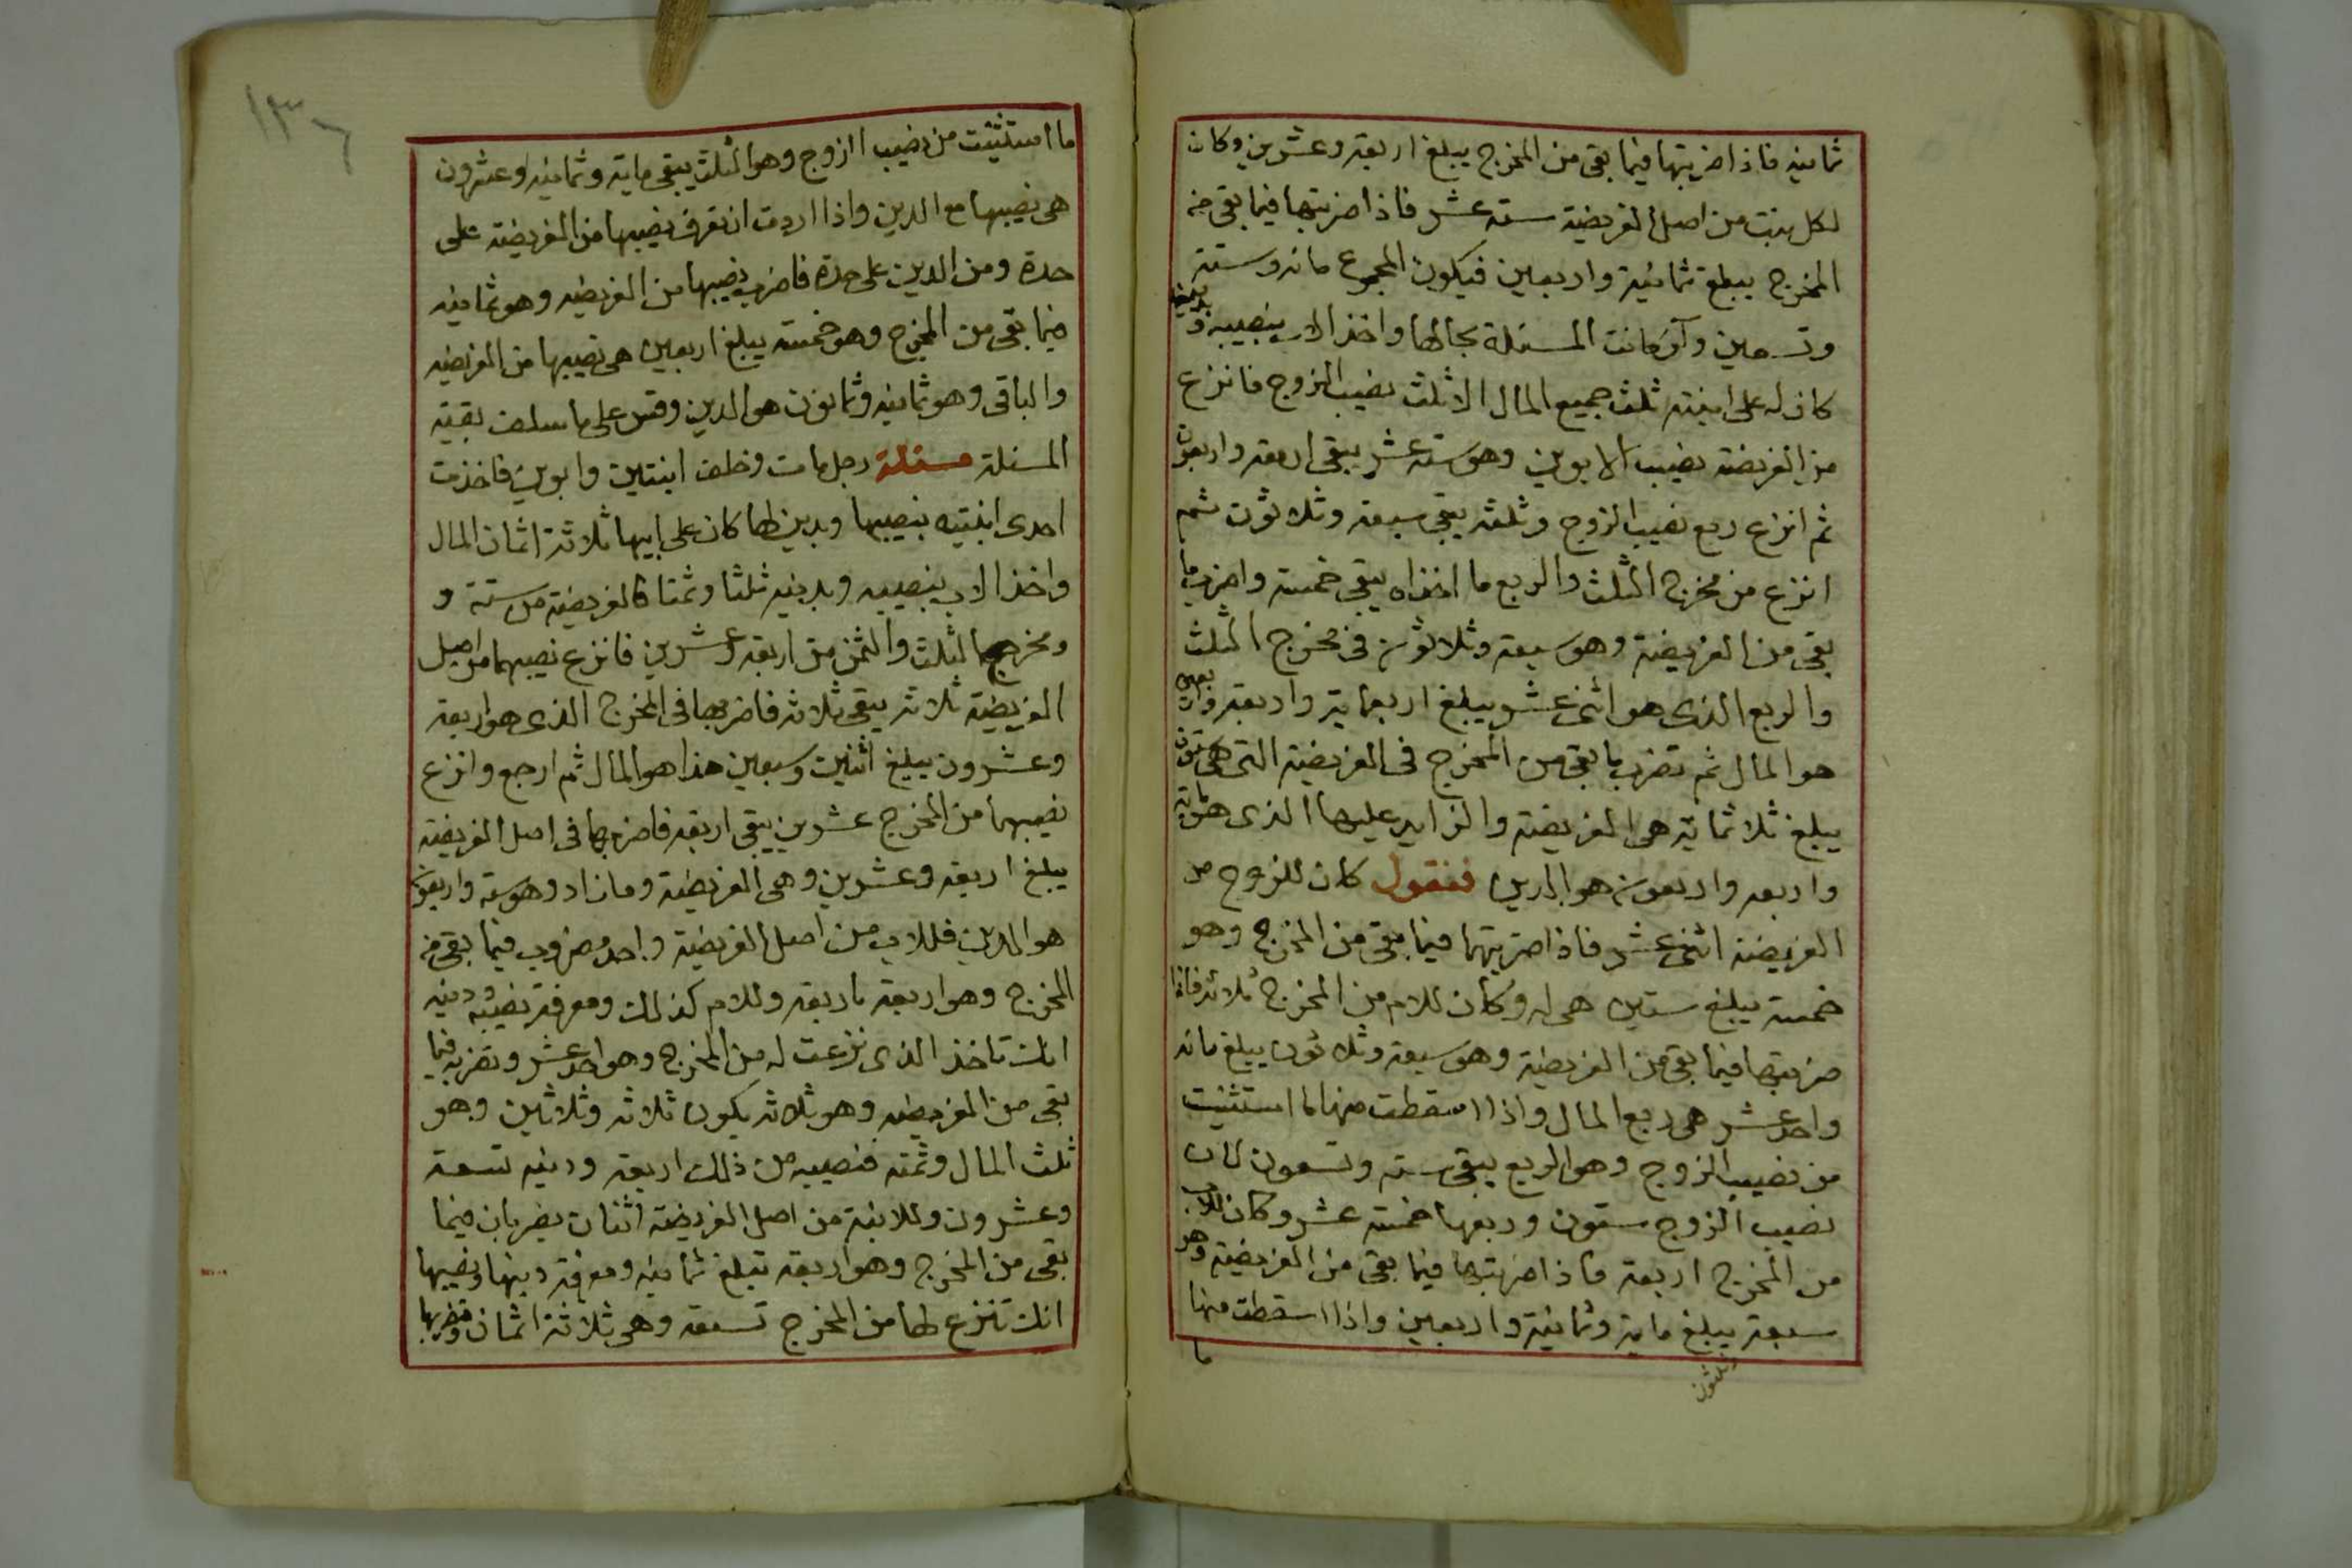 ثمانيه فاذا ضربتها فيما بقى من المخرج يبلغ اربعة وعشرين وكان
لكل بنت من اصل الفريضة سته عشر فاذا ضربتها فيما بقى من
المخرج يبلغ ثمانية واربعين فيكون المجموع مائه وستة
وتسعين وان كانت المسئلة بحالها واخذ الاب بنصيبه وبدينه
كان له على ابنته ثلث جميع المال الا ثلث نصيب الزوج فانزع
من الفريضة نصيب الابوين وهو سته عشر يبقى اربعة واربعون
ثم انزع ربع نصيب الزوج وثلثه يبقى سبعة وثلاثون ثم
انزع من مخرج الثلث والربع ما اخذاه يبقى خمسة واضرب ما
بقى من الفريضة وهو سبعة وثلاثون في مخرج الثلث
والربع الذى هو اثنى عشر يبلغ اربعماية واربعة واربعين
هو المال ثم تضرب ما بقى من المخرج فى الفريضة التى هى ستون
يبلغ ثلاثماية هى الفريضة والزايد عليها الذى هو ماية
واربعه واربعون هو الدين فنقول كان للزوج من
الفريضة اثنى عشر فاذا ضربتها فيما بقى من المخرج وهو
خمسة يبلغ ستين هى له وكان للام من المخرج ثلاثه فاذا
ضربتها فيما بقى من الفريضة وهو سبعة وثلاثون يبلغ مائه
واحد عشر هى ربع المال واذا اسقطت منها ما استثنيت
من نصيب الزوج وهو الربع يبقى سته وتسعون لان
نصيب الزوج ستون وربعها خمسة عشر وكان للاب
من المخرج اربعة فاذا ضربتها فيما بقى من الفريضة وهو
سبعة يبلغ ماية وثمانية واربعين واذا اسقطت منها
وثلثون
ما
١٣٦
ما استثنيت من نصيب الزوج وهو الثلث يبقى ماية وثمانيه وعشرون
هى نصيبها مع الدين واذا اردت ان تعرف نصيبها من الفريضة على
حدة ومن الدين على حدة فاضرب نصيبها من الفريضه وهو ثمانيه
فيما بقى من المخرج وهو خمسة يبلغ اربعين هى نصيبها من الفريضه
والباقى وهو ثمانيه وثمانون هو الدين وقس على ما سلف بقية
المسئلة مسئلة رجل مات وخلف ابنتين وابوين فاخذت
احدى ابنتيه بنصيبها وبدين لها كان على ابيها ثلاثة اثمان المال
واخذ الاب بنصيبه وبدينه ثلثا وثمنا فالفريضة من ستة و
ومخرج الثلث والثمن من اربعة وعشرين فانزع نصيبهما من اصل
الفريضة ثلاثه يبقى ثلاثه فاضربها فى المخرج الذى هو اربعة
وعشرون يبلغ اثنين وسبعين هذا هو المال ثم ارجع وانزع
نصيبهما من المخرج عشرين يبقى اربعة فاضربها فى اصل الفريضة
يبلغ اربعة وعشرين وهى الفريضة وما زاد وهو ستة واربعون
هو الدين فللاب من اصل الفريضة واحد مضروب فيما بقى من
المخرج وهو اربعة باربعة وللام كذلك ومعرفة نصيبه ودينه
انك تاخذ الذى نزعت له من المخرج وهو احد عشر وتضربه فيما
بقى من الفريضه وهو ثلاثه يكون ثلاثه وثلاثين وهو
ثلث المال وثمنه فنصيبه من ذلك اربعة ودينه تسعة
وعشرون وللابنة من اصل الفريضة اثنان يضربان فيما
بقى من المخرج وهو اربعة تبلغ ثمانيه ومعرفة دينها ونصيبها
انك تنزع لها من المخرج تسعة وهى ثلاثة اثمان وتضربها